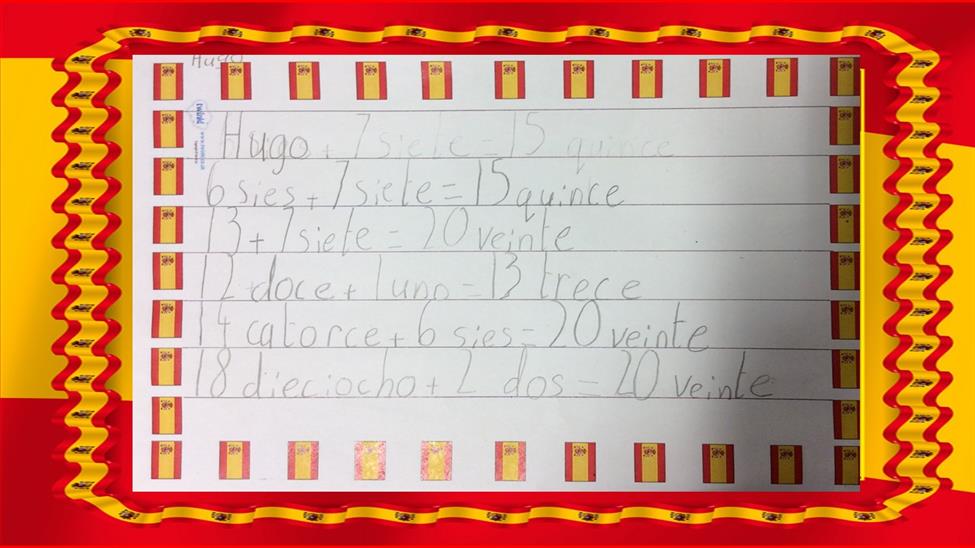 Hugo
Hugo + 7 siete = 15 quince
6 sies + 7 siete = 15 quince
13 + 7 siete = 20 veinte
12 doce + 1 uno = 13 trece
14 catorce + 6 sies = 20 veinte
18 dieciocho + 2 dos = 20 veinte